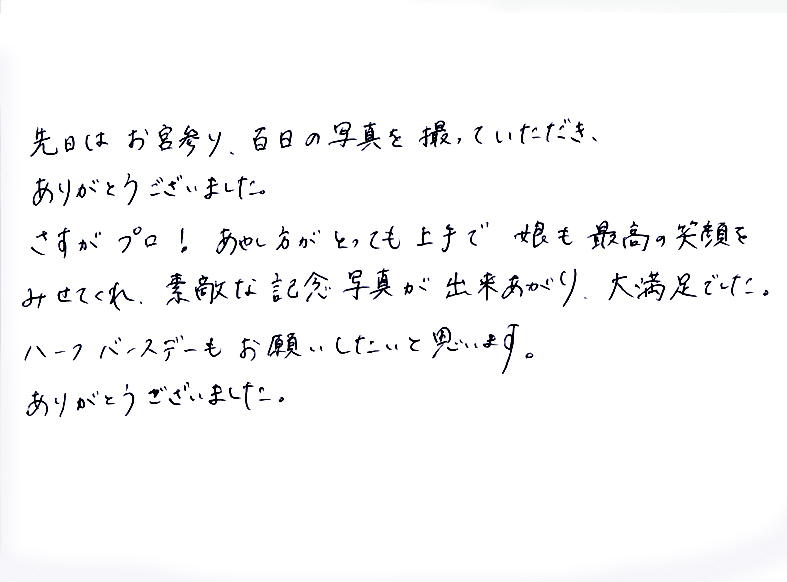 先日は お宮参り、百日の写真を 撮っていただき、
ありがとうございました。
さすが プロ! あやし方が とっても 上手で 娘も 最高の笑顔を
みせてくれ、素敵な 記念写真が 出来あがり、大満足でした。
ハーフバースデーも お願いしたいと思います。
ありがとうございました。